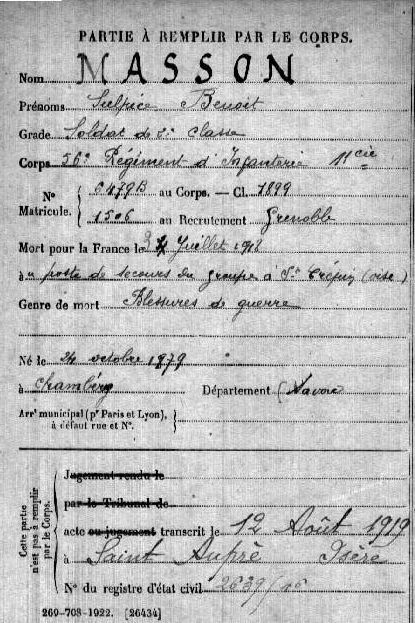 PARTIE À REMPLIR PAR LE CORPS.
Nom MASSON
Prénoms Sulpice Benoit
Grade Soldat de 2e classe
Corps 56e Régiment d'Infanterie 11 cie
No Matricule. { 6479B au Corps. — Cl. 1899
1506 au Recrutement Grenoble
Mort pour la France le Juillet 1918
à u poste de secours du groupe à St Crépin (oise)
Genre de mort Blessures de guerre
Né le 24 octobre 1879
à Chambéry Département (Savoie
Arrt municipal (pr Paris et Lyon), à défaut rue et No. }
Cette partie n'est pas à remplir par le Corps.
Jugement rendu le
par le Tribunal de
acte ou jugement transcrit le 12 Août 1919
à Saint Aupré Isère
No du registre d'état civil 2639/16
269-708-1922. [26434]